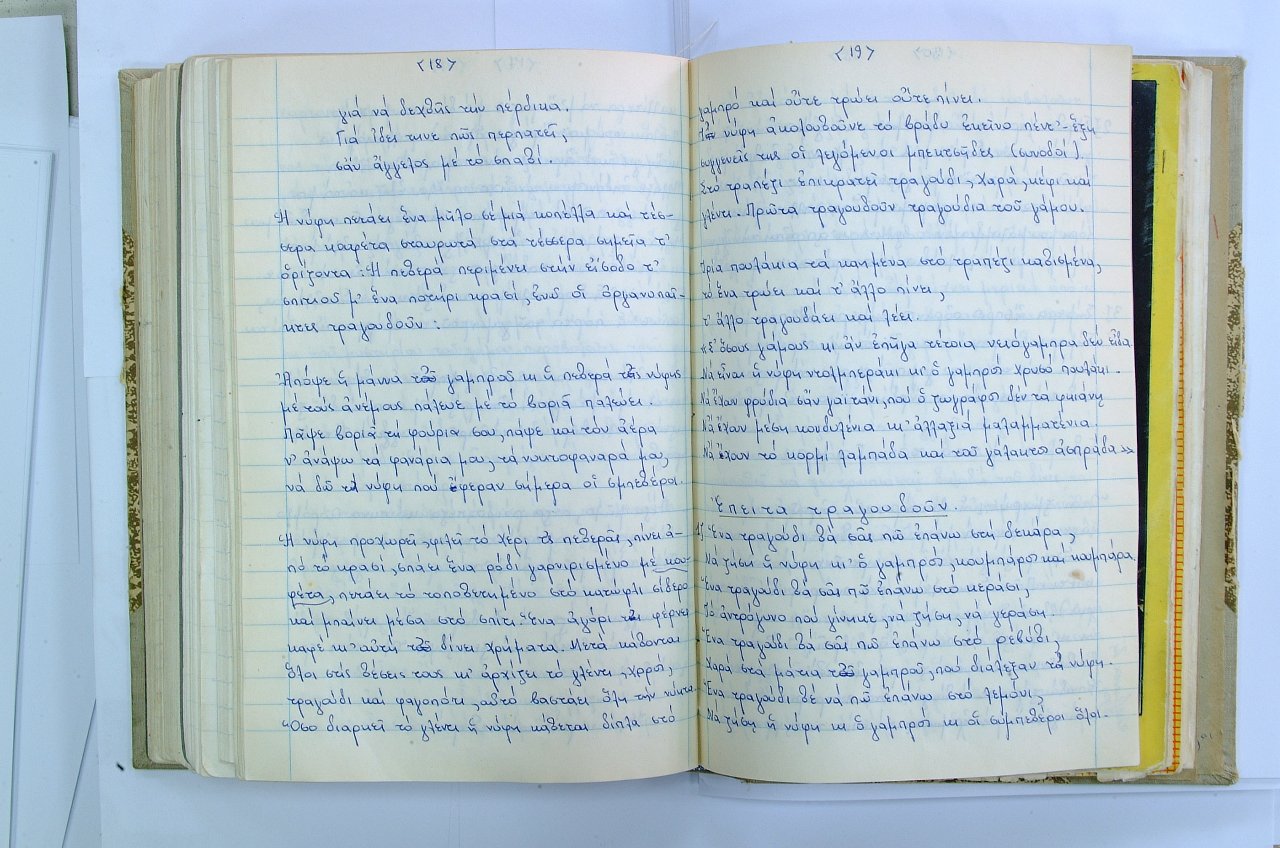 <18>
γιά νά δεχθῆς τήν πέρδικα.
Γιά ἰδές τηνε πῶς περπατεῖ,
σάν ἄγγελος μέ τό σπαθί.
Ἡ νύφη πετάει ἕνα μῆλο σέ μιά κοπέλλα καί τέσ-
σερα κουφέτα σταυρωτά στά τέσσερα σημεῖα τ'
ὁρίζοντα. Ἡ πεθερά περιμένει στήν εἴσοδο τ'
σπιτιοῦ μ' ἕνα ποτήρι κρασί, ἐνῶ οἱ ὀργανοπαῖ-
κτες τραγουδοῦν:
Ἀπόψε ἡ μάννα τοῦ γαμπροῦ κι ἡ πεθερά τῆς νύφης
μέ τούς ἀνέμους πάλευε μέ τό βοριᾶ παλεύει.
Πάψε βοριά τή φούρια σου, πάψε καί τόν ἀέρα
ν' ἀνάψω τά φανάρια μου, τά νυκτοφαναρά μου,
νά δῶ τή νύφη πού ἔφεραν σήμερα οἱ συμπεθέροι.
Ἡ νύφη προχωρεῖ, φιλεῖ τό χέρι τῆς πεθερᾶς, πίνει ἀ-
πό τό κρασί, σπάει ἕνα ρόδι γαρνιρισμένο μέ κου-
φέτα, πατάει τό τοποθετημένο στό κατώφλι σίδερο
καί μπαίνει μέσα στό σπίτι. Ἕνα ἀγόρι τῆς φέρνει
καφέ κι' αὐτή τοῦ δίνει χρήματα. Μετά κάθονται
ὅλοι στίς θέσεις τους κι' ἀρχίζει τό γλέντι, χορός,
τραγούδι καί φαγοπότι, αὐτό βαστάει ὅλη τήν νύκτα.
Ὅσο διαρκεῖ τό γλέντι ἡ νύφη κάθεται δίπλα στό
<19>
γαμπρό καί οὔτε τρώει οὔτε πίνει.
Τήν νύφη ἀκολουθοῦνε τό βράδυ ἐκεῖνο πέντ'-ἕξη
συγγενεῖς της οἱ λεγόμενοι μπεκτσῆδες (συνοδοί).
Στό τραπέζι ἐπικρατεῖ τραγούδι, χαρά, κέφι καί
γλέντι. Πρῶτα τραγουδοῦν τραγούδια τοῦ γάμου.
Τρία πουλάκια τά καημένα στό τραπέζι καθισμένα,
τό ἕνα τρώει καί τ' ἄλλο πίνει,
τ' ἄλλο τραγουδάει καί λέει.
«Σ' ὅσους γάμους κι ἄν ἐπῆγα τέτοια νειόγαμπρα δέν εἶδα.
Νά εἶναι ἡ νύφη ντολμπεράκι κι' ὁ γαμπρός χρυσό πουλάκι.
Νά ἔχουν φρύδια σάν γαϊτάνι, πού ὁ ζωγράφος δέν τά φτιάνη
Νά ἔχουν μέση κονδυλένια κι' ἀλλαξιά μαλαμματένια.
Νά ἔχουν τό κορμί λαμπάδα καί τοῦ γάλακτος ἀσπράδα»
Ἔπειτα τραγουδοῦν.
Ἕνα τραγούδι θά σᾶς πῶ ἐπάνω στή δεκάρα,
Νά ζήση ἡ νύφη κι' ὁ γαμπρός, κουμπάρος καί κουμπάρα.
Ἕνα τραγούδι θά σᾶς πῶ ἐπάνω στό κεράσι,
Τό ἀντρόγυνο πού γίνηκε, νά ζήση, νά γεράση.
Ἕνα τραγούδι θά σᾶς πῶ ἐπάνω στό ρεβύθι,
Χαρά στά μάτια τοῦ γαμπροῦ, πού διάλεξαν τή νύφη.
Ἕνα τραγούδι θέ νά πῶ ἐπάνω στό λεμόνι,
Νά ζήση ἡ νύφη κι ὁ γαμπρός κι οἱ συμπεθέροι ὅλοι.